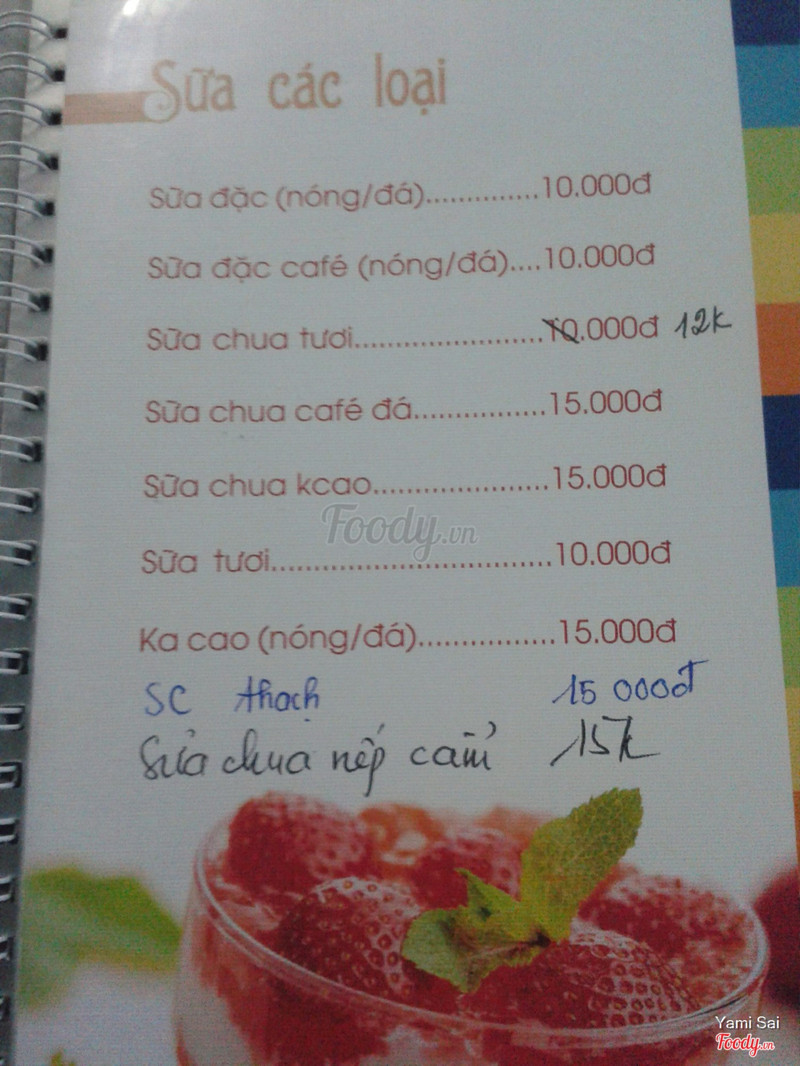 Sữa các loại
Sữa đặc (nóng/đá)..............10.000đ
Sữa đặc café (nóng/đá)....10.000đ
Sữa chua tươi.......................10.000đ 12k
Sữa chua café đá................15.000đ
Sữa chua kcao.....................15.000đ
Foody.vn
Sữa tươi..................................10.000đ
Ka cao (nóng/đá).................15.000đ
SC thạch 15 000đ
Sửa chua nếp cẩm 15k
Yami Sai
Foody.vn